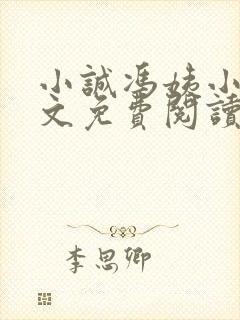 小誠馮姨小
文免費閱讀
李思卿